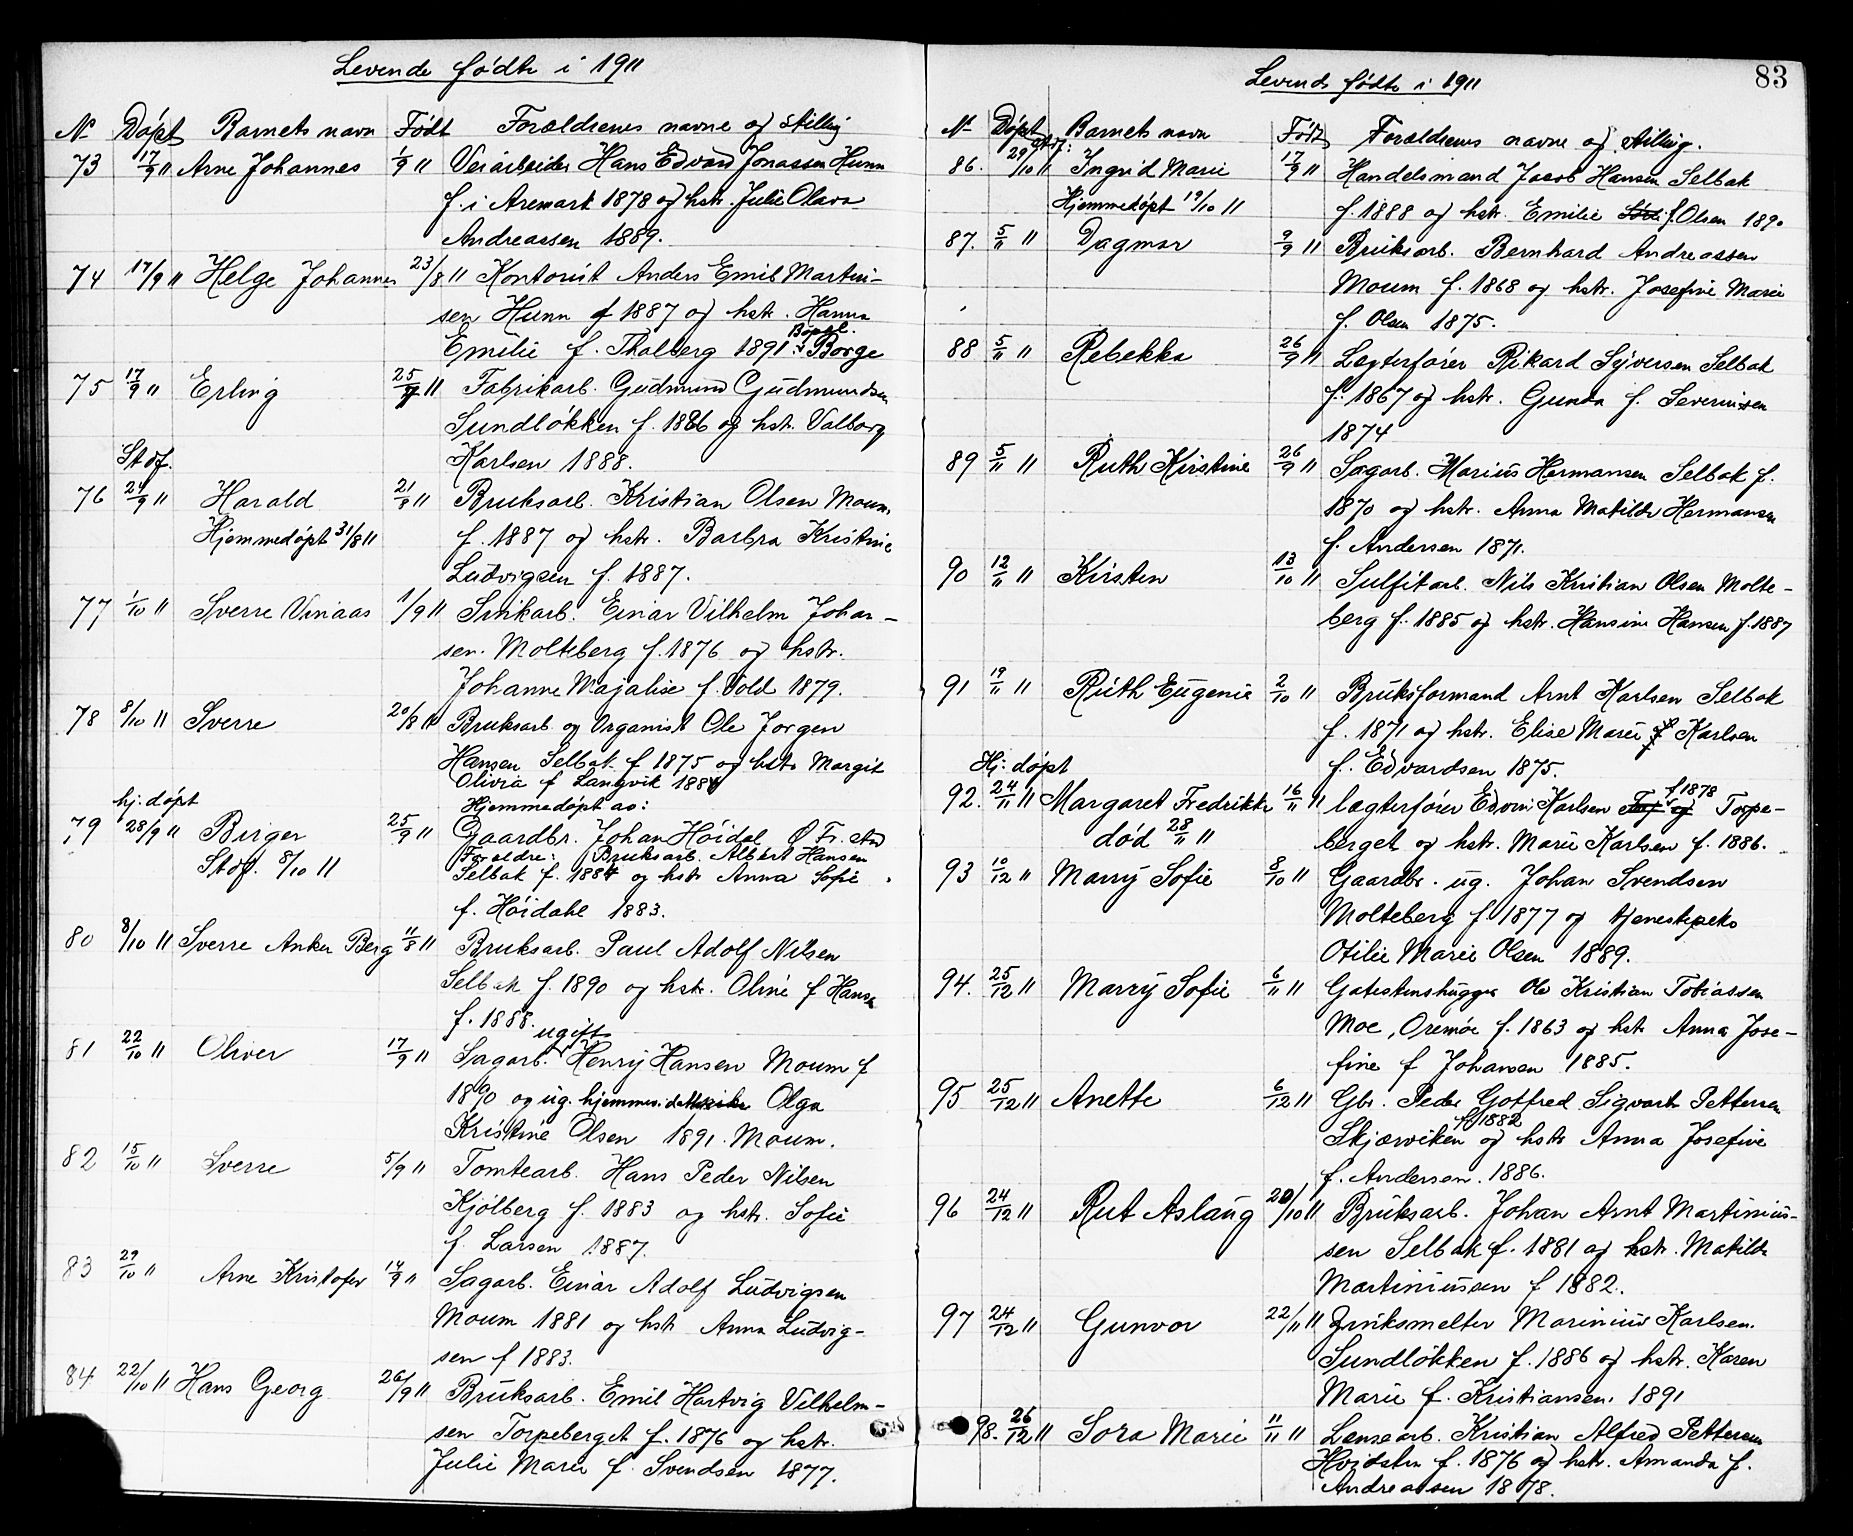 Levende fødte i 1911
No Døpt Barnets navn Født Forældrenes navne og stilling
73 17/9 11 Arne Johannes 1/9 11 Veiarbeider Hans Edvard Jonassen Hunn
f. i Aremark 1878 og hstr. Julie Olava
Andreassen 1889.
74 17/9 11 Helge Johannes 23/8 11 Kontorist Anders Emil Martin-
sen Hunn f 1887 og hstr. Hanna
Bopæl.
Emilie f. Tholberg 1891. Borge
75 17/9 11 Erling 25/7 11 Fabrikarb. Gudmund Gudmundsen
Sundløkken f. 1886 og hst. Valborg
Karlsen 1888.
Stdf.
76 24/9 11 Harald 21/8 11 Bruksarb. Kristian Olsen Moum
Hjemmedøpt 31/8 11 f. 1887 og hstr. Barbra Kristine
Ludvigsen f. 1887.
77 1/10 11 Sverre Vinaas 1/9 11 Sinkarb. Einar Vilhelm Johan-
sen. Molteberg f. 1876 og hstr.
Johanne Majalise f. Vold 1879.
78 8/10 11 Sverre 20/8 11 Bruksarb og Organist Ole Jørgen
Hansen Selbak f 1875 og hstr Margit
Olivia f Langvik 1884
Hjemmedøpt av:
hj. døpt
79 28/9 11 Birger 25/9 11 Gaardbr. Johan Høidal Ø Fr.stad
Stdf. 8/10 11 Foreldre: Bruksarb. Albert Hansen
Selbak f. 1884 og hstr Anna Sofie
f. Høidahl 1883.
80 8/10 11 Sverre Anker Berg 11/8 11 Bruksarb. Paul Adolf Nilsen
Selbak f. 1890 og hstr. Oline f Hansen
f. 1888.
ugift
81 22/10 11 Oliver 17/9 11 Sagarb. Henry Hansen Moum f
1890 og ug. hjemmev. datter Olga
Kristine Olsen 1891. Moum.
82 15/10 11 Sverre 5/9 11 Tomtearb. Hans Peder Nilsen
Kjølberg f. 1883 og hstr. Sofie
f. Larsen 1887.
83 29/10 11 Arne Kristofer 14/9 11 Sagarb. Einar Adolf Ludvigsen
Moum 1881 og hstr Anna Ludvig-
sen f 1883.
84 22/10 11 Hans Georg 26/9 11 Bruksarb. Emil Hartvig Vilhelm-
sen Torpeberget f. 1876 og hstr.
Julie Marie f. Svendsen 1877.
83
Levende fødte i 1911
No Døpt Barnets navn Født Forældrenes navne og stilling.
Stdf:
86. 29/10 11 Ingrid Marie 17/9 11 Handelsmand Jacob Hansen Selbak
Hjemmedøpt 19/10 11 f. 1888 og hstr. Emilie f. Olsen 1890
87. 5/11 11 Dagmar 9/9 11 Bruksarb. Bernhard Andreassen
Moum f. 1868 og hstr. Josefine Marie
f. Olsen 1875.
88 5/11 11 Rebekka 26/9 11 Lægterfører Rikard Syversen Selbak
f. 1867 og hstr. Gunda f. Severinsen
1874
89 5/11 11 Ruth Kirstine 26/9 11 Sagarb. Marius Hermansen Selbak f.
1870 og hstr. Anna Matilde Hermansen
f. Andersen 1871.
90 12/11 11 Kirsten 13/10 11 Sulfitarb. Nils Kristian Olsen Molte-
berg f. 1885 og hstr. Hansine Hansen f. 1887
91 19/11 11 Ruth Eugenie 2/10 11 Bruksformand Arnt Karlsen Selbak
f. 1871 og hstr. Elise Marie f Karlsen
f. Edvardsen 1875.
Hj: døpt
f 1878
92. 24/11 11 Margaret Fredrikke 16/11 11 lægterfører Edvin Karlsen Torpe-
død 28/11 11 berget og hstr. Marie Karlsen f. 1886.
93 10/12 11 Marry Sofie 8/10 11 Gaardbr. ug. Johan Svendsen
Molteberg f. 1877 og tjenestepike
Otilie Marie Olsen 1889.
94. 25/12 11 Marry Sofie 6/11 11 Gatestenshugger Ole Kristian Tobiassen
Moe, Oremoe f. 1863 og hstr Anna Jose-
fine f Johansen 1885.
95 25/12 11 Anette 6/12 11 Gbr. Peder Gotfred Sigvart Pettersen
f 1882
Skjærviken og hstr Anna Josefine
f. Andersen. 1886.
96 24/12 11 Rut Aslaug 20/10 11 Bruksarb. Johan Arnt Martinius-
sen Selbak f. 1881 og hstr. Matilde
Martiniussen f 1882.
97 24/12 11 Gunvor 22/11 11 Zinksmelter Marinius Karlsen.
Sundløkken f. 1886 og hstr. Karen
Marie f. Kristiansen. 1891
98. 26/12 11 Sora Marie 11/11 11 Lænsearb. Kristian Alfred Pettersen
f. 1876 og hstr. Amanda f.
Andreassen 1878.